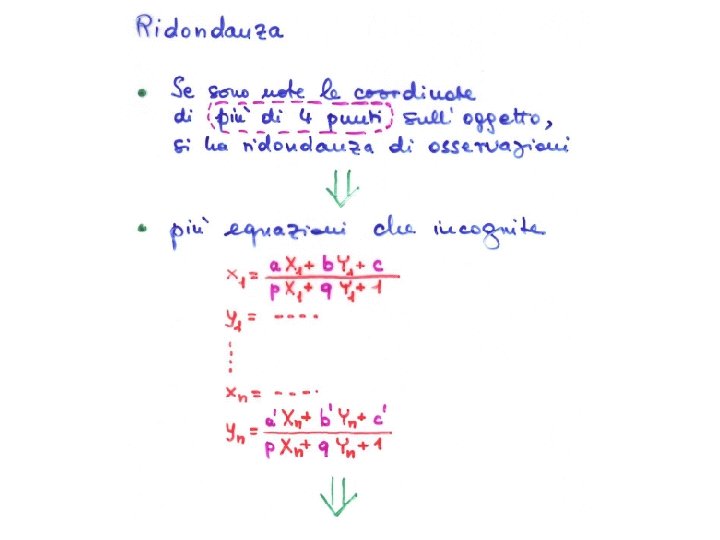 Ridondanza
• Se sono note le coordinate
di più di 4 punti sull'oggetto,
si ha ridondanza di osservazioni
⇓
• più equazioni che incognite
x₁ = (a X₁ + b Y₁ + c) / (p X₁ + q Y₁ + 1)
y₁ = ----
⋮
xₙ = ----
yₙ = (a' Xₙ + b' Yₙ + c') / (p Xₙ + q Yₙ + 1)
⇓